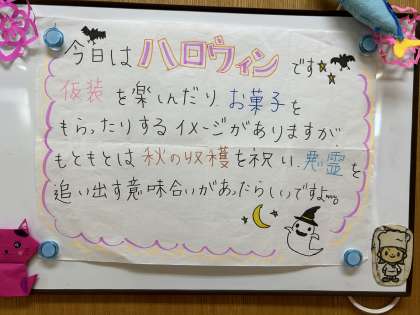 今日はハロウィンです
仮装を楽しんだり、お菓子を
もらったりするイメージがありますが、
もともとは秋の収穫を祝い、悪霊を
追い出す意味合いがあったらしいですよ